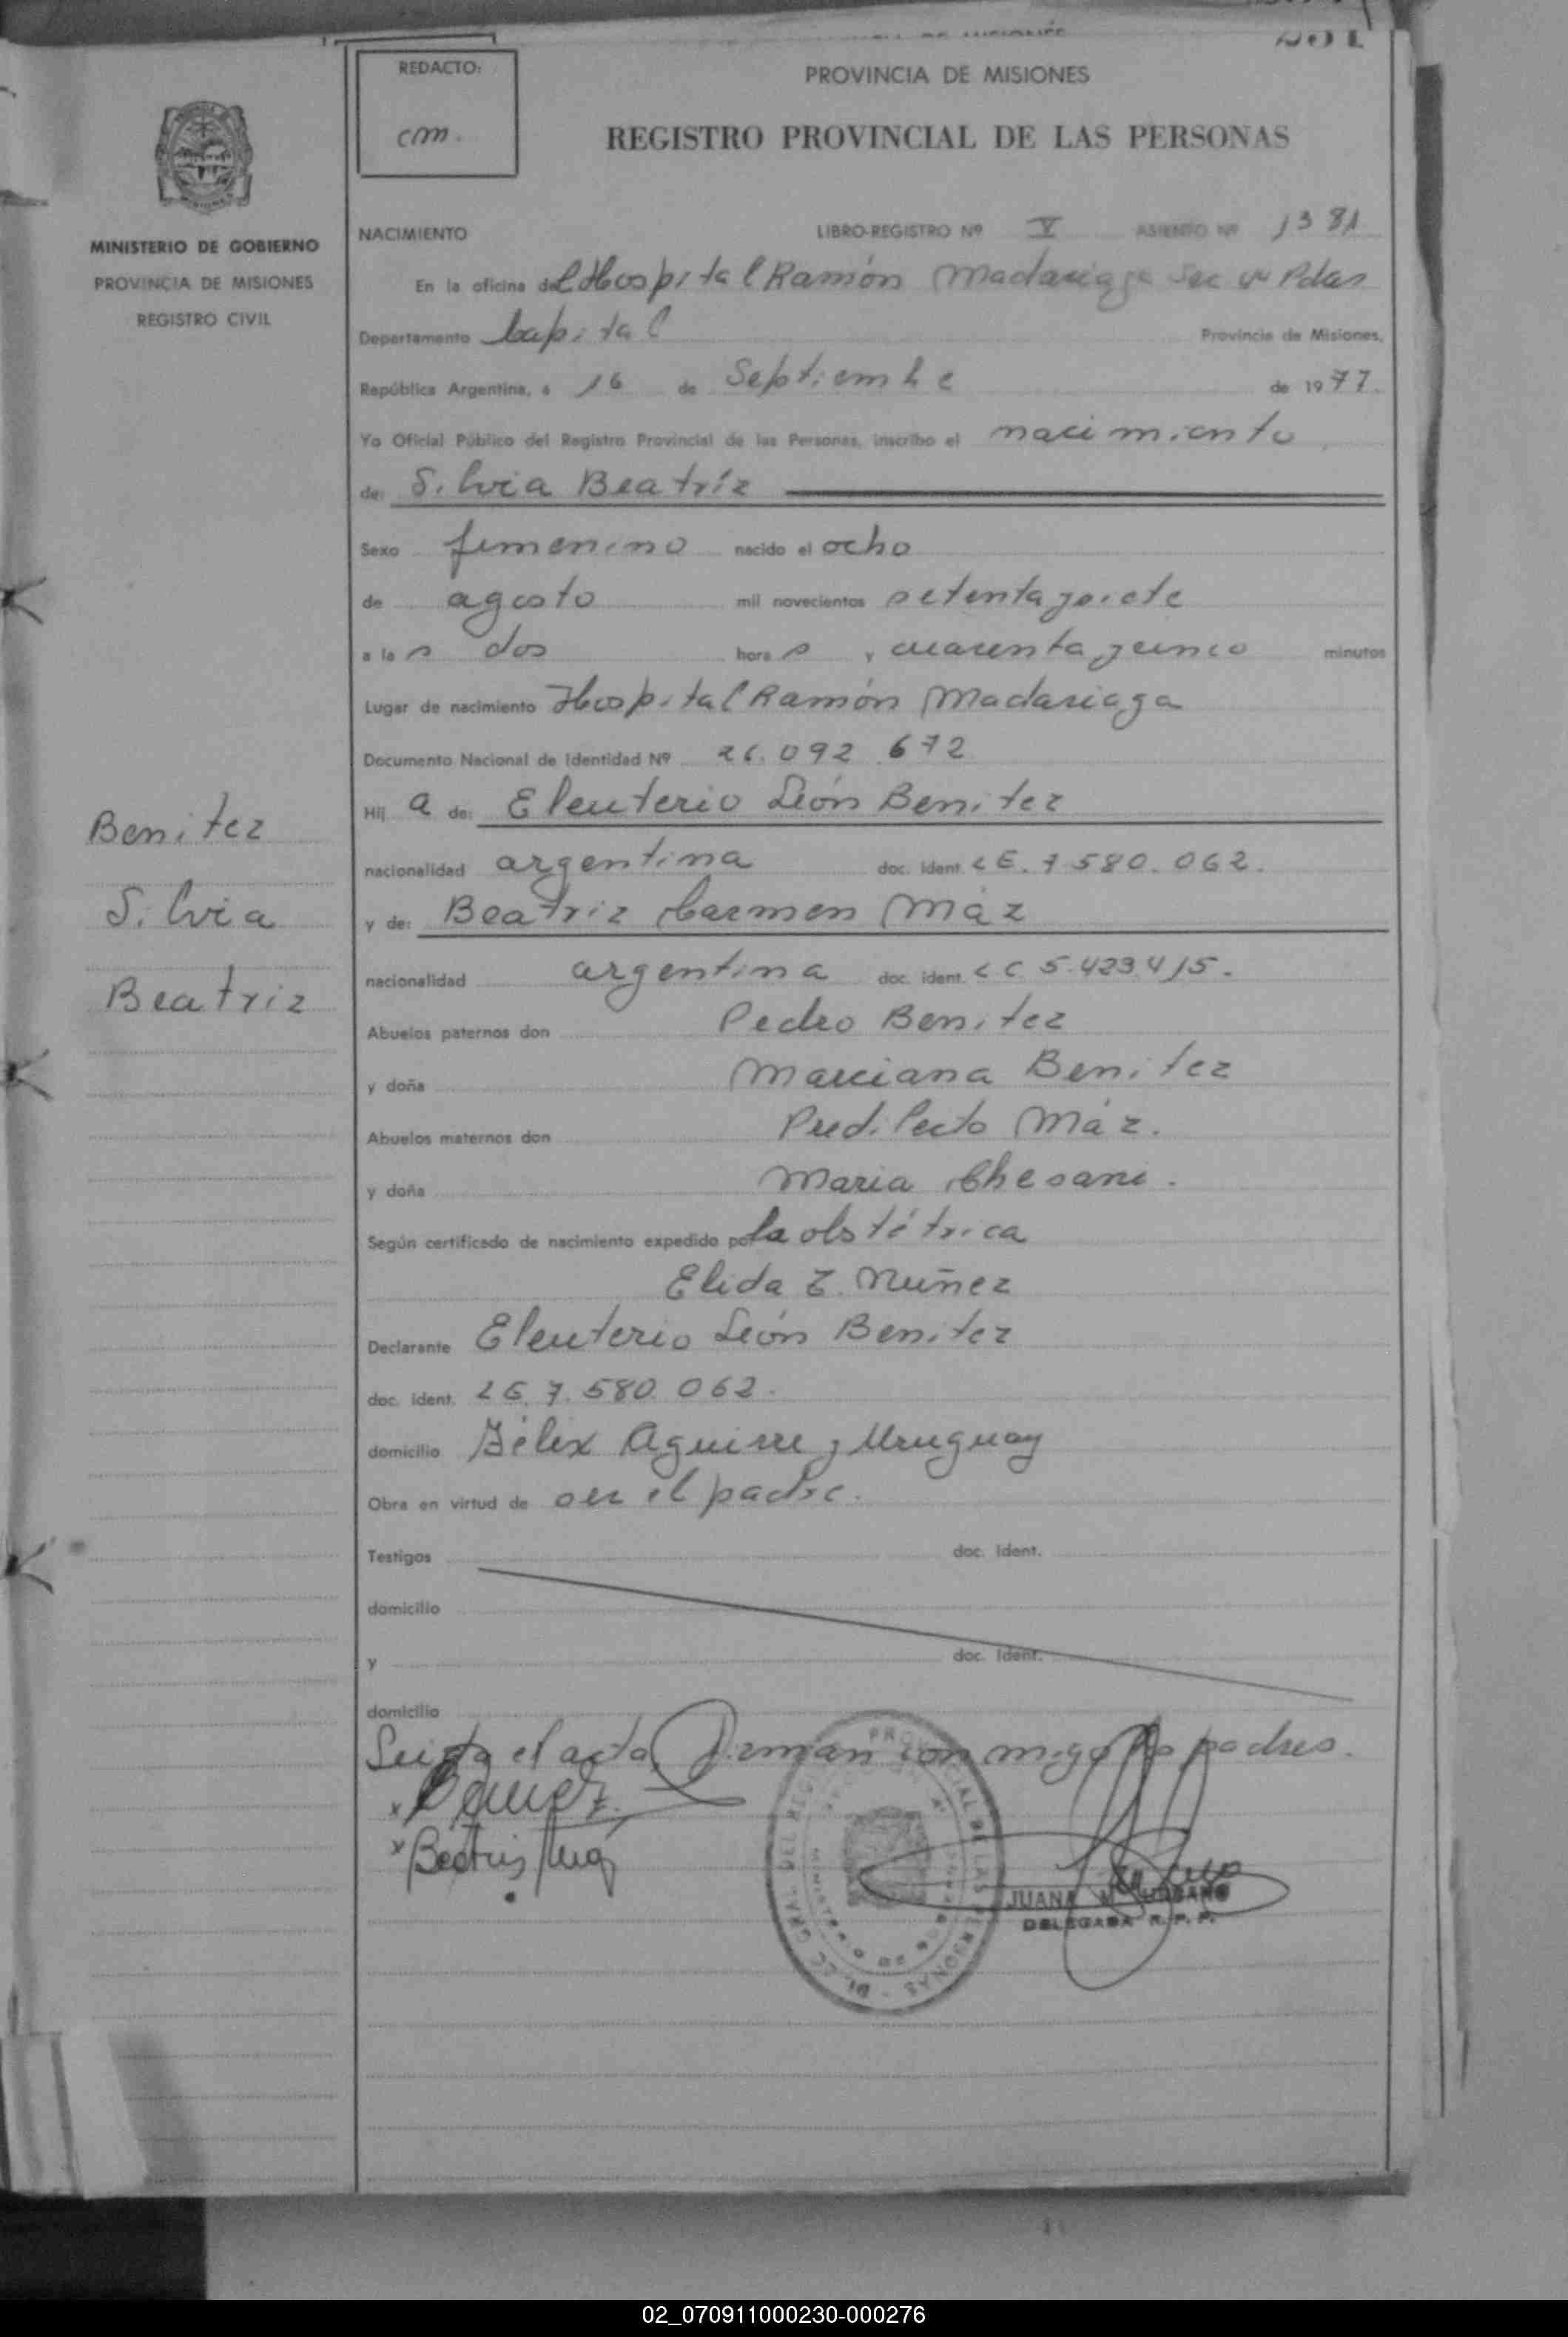 REDACTO:
cm.
PROVINCIA DE MISIONES
REGISTRO PROVINCIAL DE LAS PERSONAS
MINISTERIO DE GOBIERNO
PROVINCIA DE MISIONES
REGISTRO CIVIL
NACIMIENTO LIBRO-REGISTRO Nº V ASIENTO Nº 1381
En la oficina del Hospital Ramón Madariaga Sec Pdas
Departamento Capital Provincia de Misiones,
República Argentina, a 16 de Septiembre de 1977.
Yo Oficial Público del Registro Provincial de las Personas, inscribo el nacimiento
de: Silvia Beatríz
Sexo femenino nacido el ocho
de agosto mil novecientos setenta y siete
a las dos horas y cuarenta y cinco minutos
Lugar de nacimiento Hospital Ramón Madariaga
Documento Nacional de Identidad Nº 26.092.672
Hija de: Eleuterio León Benitez
nacionalidad argentina doc. ident. LE. 7.580.062.
y de: Beatriz Carmen Máz
nacionalidad argentina doc. ident. LC 5.423.415.
Abuelos paternos don Pedro Benitez
y doña Marciana Benitez
Abuelos maternos don Predilecto Máz.
y doña Maria Chesani.
Según certificado de nacimiento expedido por la obstétrica
Elida Z. Nuñez
Declarante Eleuterio León Benitez
doc. ident. LE. 7.580.062.
domicilio Félix Aguirre y Uruguay
Obra en virtud de ser el padre.
Testigos doc. ident.
domicilio
y doc. ident.
domicilio
Leida el acta Firman conmigo los padres.
x Benitez
x Beatris Maz
JUANA M. URBANO
DELEGADA R. P. P.
Benitez
Silvia
Beatriz
02_070911000230-000276